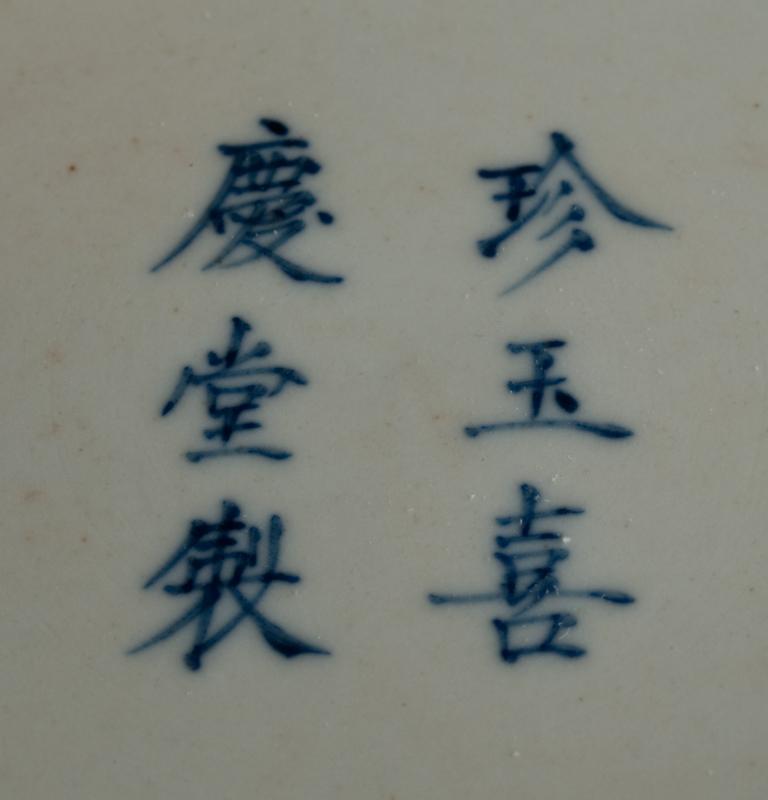 珍玉喜
慶堂製